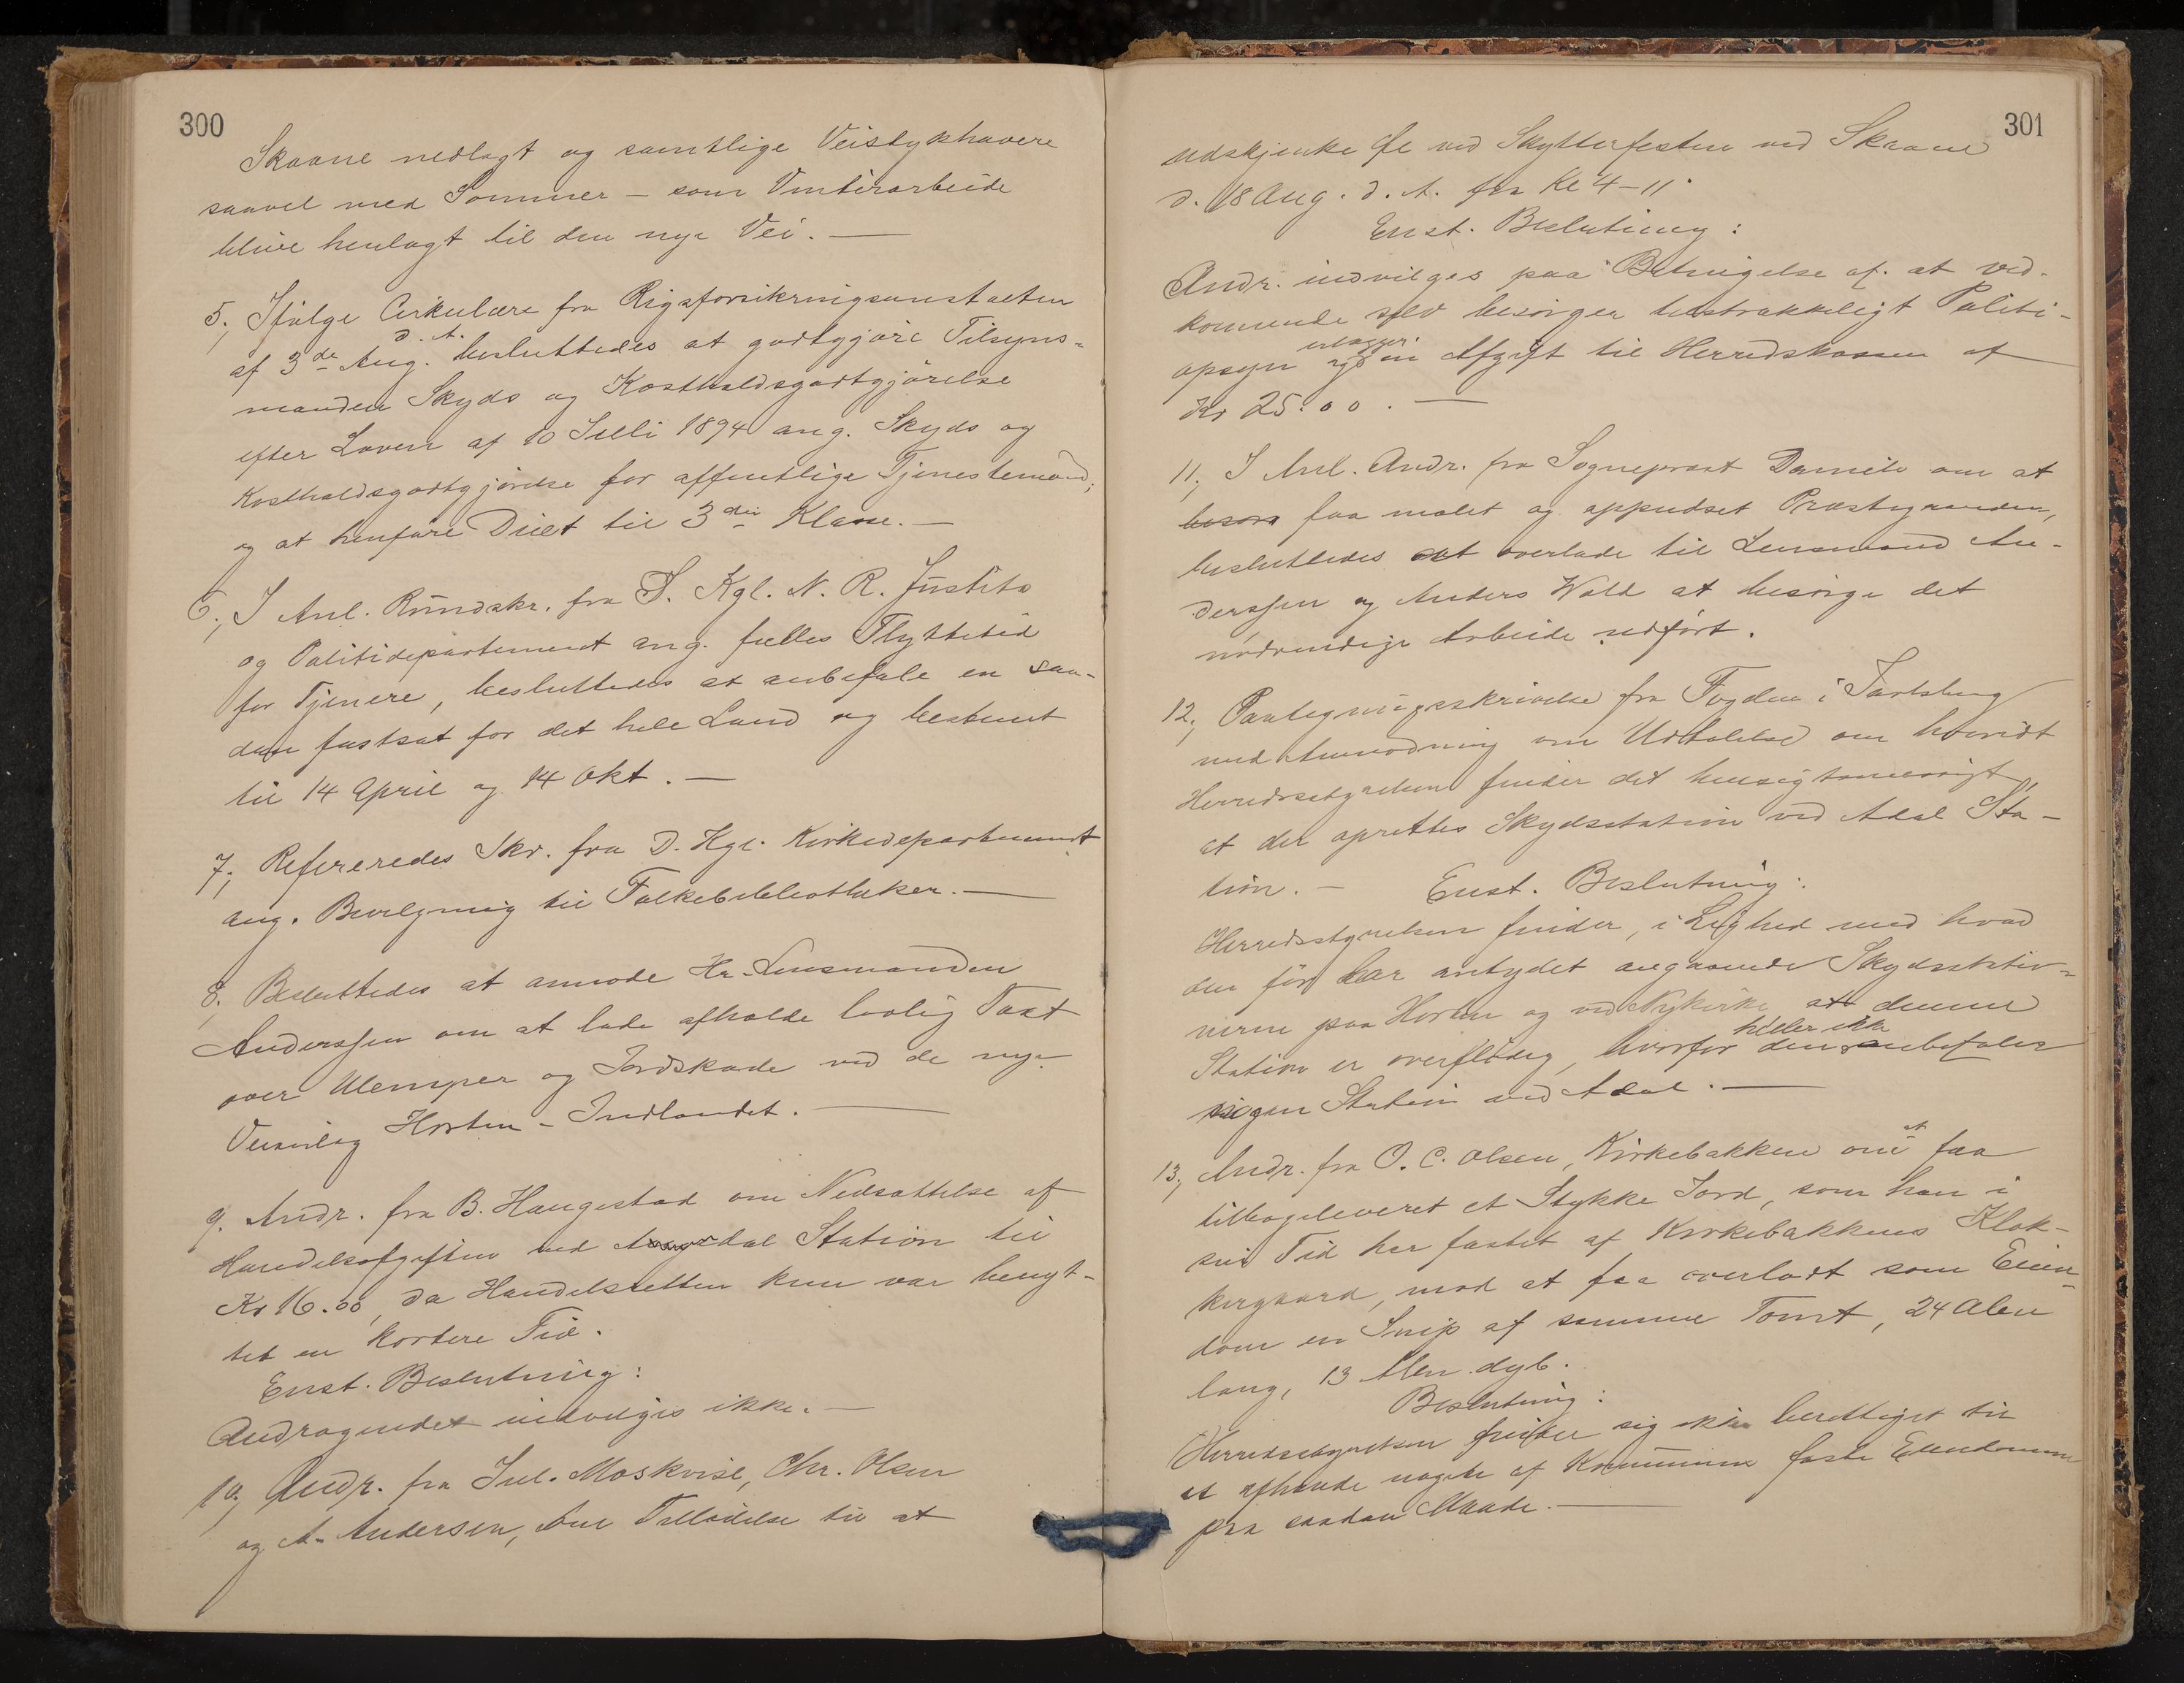 300
Skaane nedlagt og samtlige Veistykhavere
saavel med Sommer- som Vinterarbeide
blive henlagt til den nye Vei. —
5; Ifølge Cirkulære fra Rigsforsikringsanstalten
af 3de Aug. d. A. besluttedes at godtgjøre Tilsyns-
manden Skyds og Kostholdsgodtgjørelse
efter Loven af 10 Juli 1894 ang. Skyds og
Kostholdsgodtgjørelse for offentlige Tjenestemænd;
og at henføre Diæt til 3die Klasse. —
6; I Anl. Rundskr. fra D. Kgl. N. R. Justits
og Politidepartement ang. fælles Flyttetid
for Tjenere, besluttedes at anbefale en saa-
dan fastsat for det hele Land og bestemt
til 14 April og 14 Okt. —
7; Refereredes Skr. fra D. Kgl. Kirkedepartement
ang. Bevilgning til Folkebibliotheker. —
8; Besluttedes at anmode Hr. Lensmanden
Anderssen om at lade afholde lovlig Taxt
over Ulemper og Jordskade ved de nye
Veianlæg Horten - Indlandet. —
9. Andr. fra B. Haugestad om Nedsættelse af
Handelsafgiften ved Adal Station til
Kr 16.00, da Handelsretten kun var benyt-
tet en kortere Tid.
Enst. Beslutning:
Andragendet indvilges ikke. —
10; Andr. fra Jul. Moskvil, Chr. Olsen
og A. Andersen, om Tilladelse til at
301
udskjenke Øl ved Skytterfesten ved Skaane
d. 18 Aug. d. A. fra Kl 4-11.
Enst. Beslutning:
Andr. indvilges paa Betingelse af at ved-
kommende selv besørger tilstrækkeligt Politi-
opsyn og erlægger en Afgift til Herredskassen af
Kr 25.00. —
11; I Anl. Andr. fra Sogneprest Daniels om at
besørg faa malet og oppudset Præstegaarden,
besluttedes at overlade til Lensmand An-
derssen og Anders Wold at besørge det
nødvendige Arbeide udført.
12; Paategningsskrivelse fra Fogden i Jarlsberg
med Anmodning om Udtalelse om hvorvidt
Herredsstyrelsen finder det hensigtsmæssigt
at der oprettes Skydsstation ved Adal Sta-
tion. — Enst. Beslutning:
Herredsstyrelsen finder, i Lighed med hvad
den før har antydet angaaende Skydsstatio-
nerne paa Horten og ved Nykirke at denne
Station er overflødig, hvorfor den heller ikke anbefaler
nogen Station ved Adal. —
13; Andr. fra O. C. Olsen, Kirkebakken om at faa
tilbageleveret et Stykke Jord, som han i
sin Tid har fæstet af Kirkebakkens Klok-
kergaard, mod at faa overladt som Eien-
dom en Snip af samme Tomt, 24 Alen
lang, 13 Alen dyb.
Beslutning:
Herredsstyrelsen finder sig ikke berettiget til
at afhænde noget af Kommunens faste Eiendomme
paa saadan Maade. —